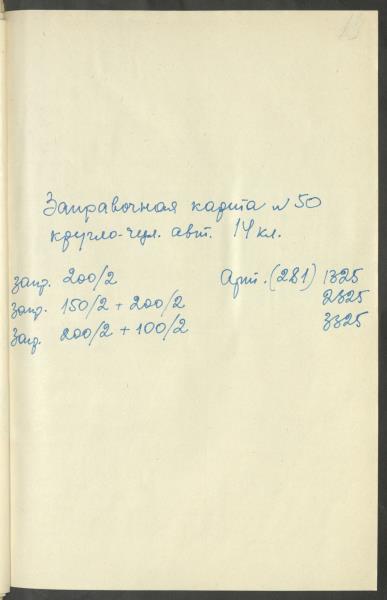 Заправочная карта № 50
кругло-чул. авт. 14 кл.
запр. 200/2 Арт. (281) 1325
запр. 150/2 + 200/2 2325
запр. 200/2 + 100/2 3325